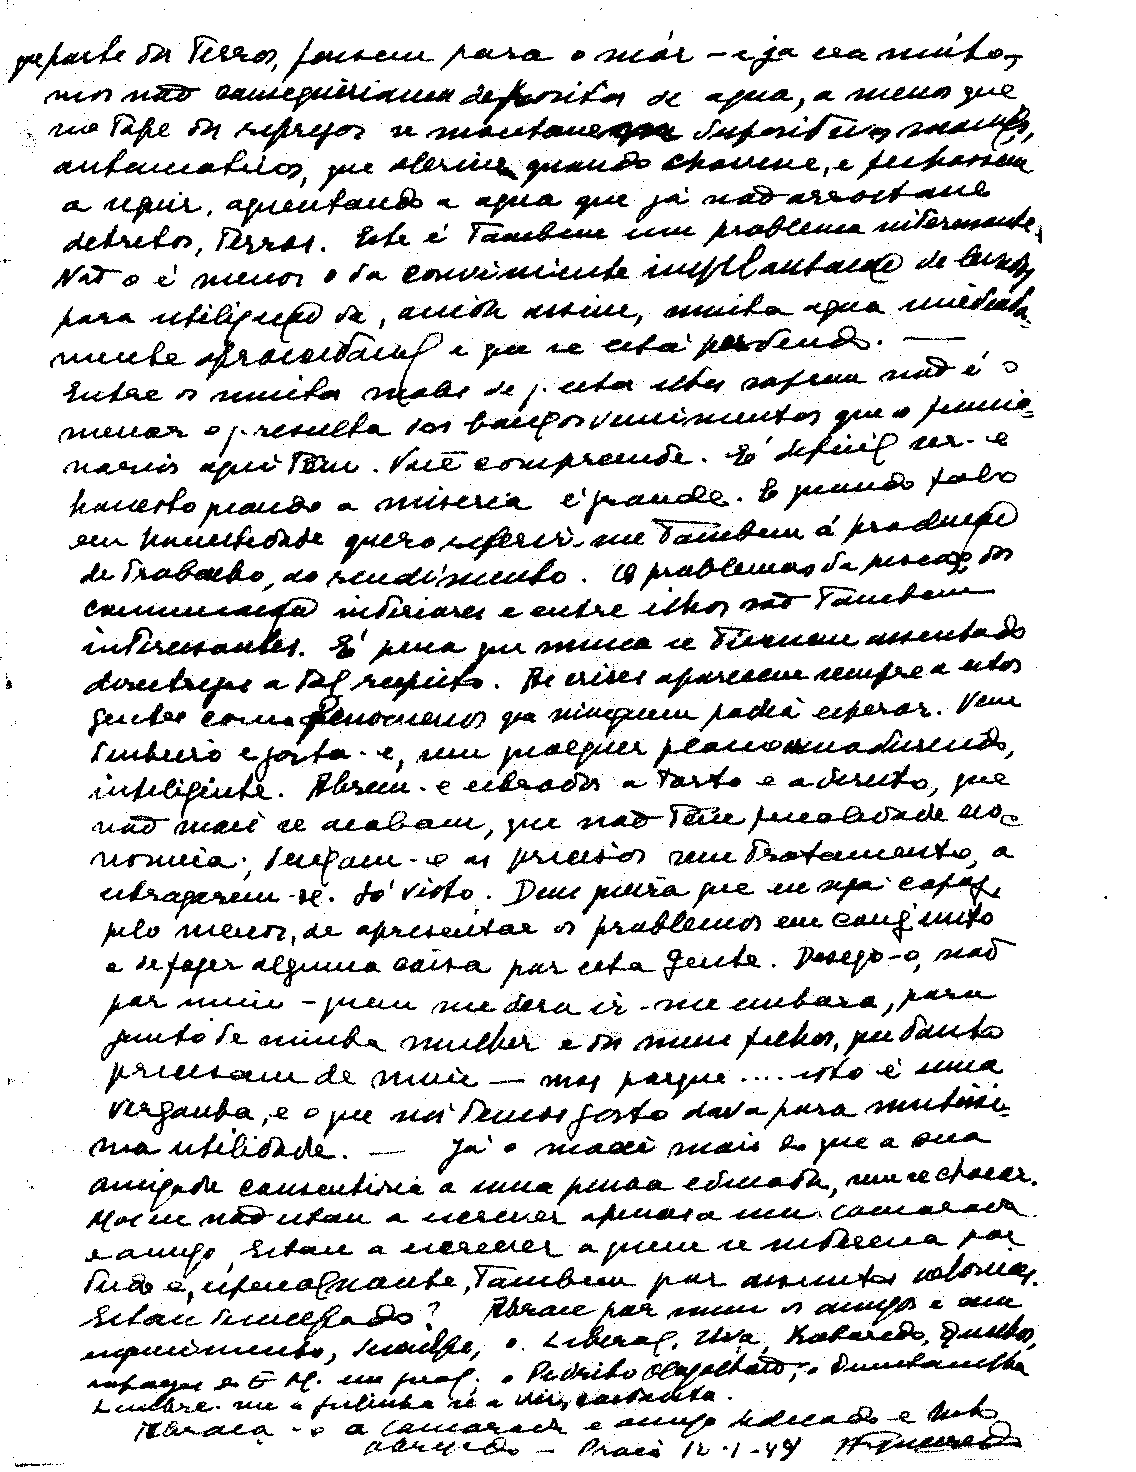 que parte das terras, fossem para o mar – e já era muito –,
nós não conseguiriamos depositos de agua, a menos que
na tape das represas se montassem dispositivos manuais,
automaticos, que abrissem quando chovesse, e fechassem
a seguir, aguentando a agua que já não arrostasse
detrictos, terras. Este é tambem um problema interessante.
Não o é menos o da conveniente implantação de
para utilização da, ainda assim, muita agua imediata-
mente aproveitavel e que se está perdendo. —
Entre os muitos males de q. estas ilhas sofrem não é o
menor o q. resulta dos baixos vencimentos que o funcio-
nario aqui tem. Você compreende. É dificil ser-se
honesto quando a miseria é grande. E quando falo
em honestidade quero referir-me tambem á produção
de trabalho, ao rendimento. Os problemas da pesca, das
comunicações interiores e entre ilhas são tambem
interessantes. É pena que nunca se tivessem assentado
directrizes a tal respeito. As crises aparecem sempre a estas
gentes como fenomenos que ninguem podia esperar. Vem
dinheiro e gasta-se, sem qualquer plano amadurecido,
inteligente. Abrem-se estradas a torto e a direito, que
não mais se acabam, que não têm finalidade eco-
nomica; deixam-se as precisas sem tratamento, a
estragarem-se. Só visto. Deus queira que eu seja capaz,
pelo menos, de apresentar os problemas em conjunto
e de fazer alguma coisa por esta gente. Desejo-o, não
por mim – quem me dera ir-me embora, para
junto de minha mulher e dos meus filhos, que tanto
precisam de mim – mas porque .... isto é uma
vergonha, e o que nós temos gasto dava para muitissi-
ma utilidade. — Já o macei mais do que a sua
amizade consentiria a uma pessoa educada, sem se chocar.
Mas eu não estou a escrever apenas a um camarada
e amigo. Estou a escrever a quem se interessa por
tudo e, especialmente, tambem por assuntos coloniais.
Estou desculpado? Abrace por mim os amigos e em
especial, o Liberal,
rapazes do E. M. em geral. o Pedrito
Lembre-me
Abraça-o o camarada e amigo dedicado e mto
obrigado – Praia 12-1-49